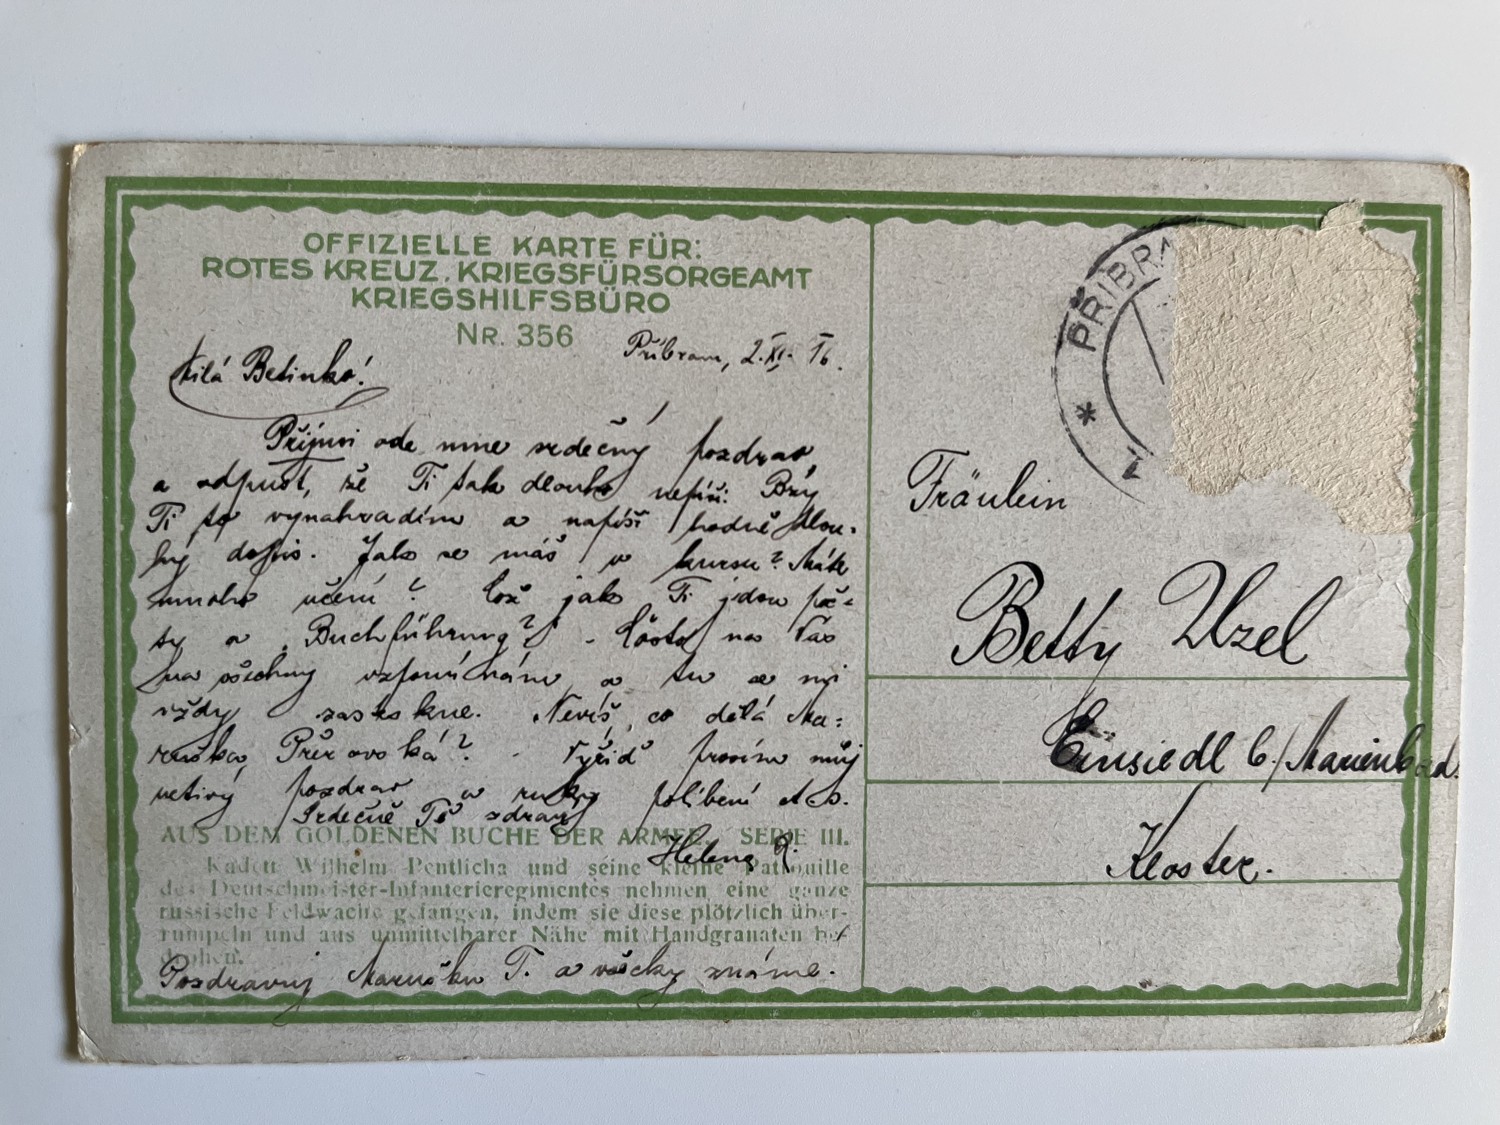 OFFIZIELLE KARTE FÜR:
ROTES KREUZ. KRIEGSFÜRSORGEAMT
KRIEGSHILFSBÜRO
NR. 356
Příbram, 2. XI. 16.
Milá Betinko!
Přijmi ode mne srdečný pozdrav
a odpusť, že Ti tak dlouho nepíši. Brzy
Ti to vynahradím a napíši hodně dlou-
hý dopis. Jak se máš v kursu? Máte
mnoho učení? Což jak Ti jdou poč-
ty a „Buchführung"? - Často na Vás
na všechny vzpomínám a tu se mi
vždy zasteskne. Nevíš, co dělá Ma-
ruška Přerovská? - Vyřiď prosím můj
uctivý pozdrav a ruky políbení
Srdečně Tě zdraví
Helena R.
AUS DEM GOLDENEN BUCHE DER ARMEE, SERIE III.
Kadett Wilhelm Pentlicha und seine kleine Patrouille
des Deutschmeister-Infanterieregimentes nehmen eine ganze
russische Feldwache gefangen, indem sie diese plötzlich über-
rumpeln und aus unmittelbarer Nähe mit Handgranaten be-
drohen.
Pozdravuj Marušku T. a všecky známé.
PŘIBRA
*
Fräulein
Betty Uzel
Einsiedl b/Marienbad.
Kloster.